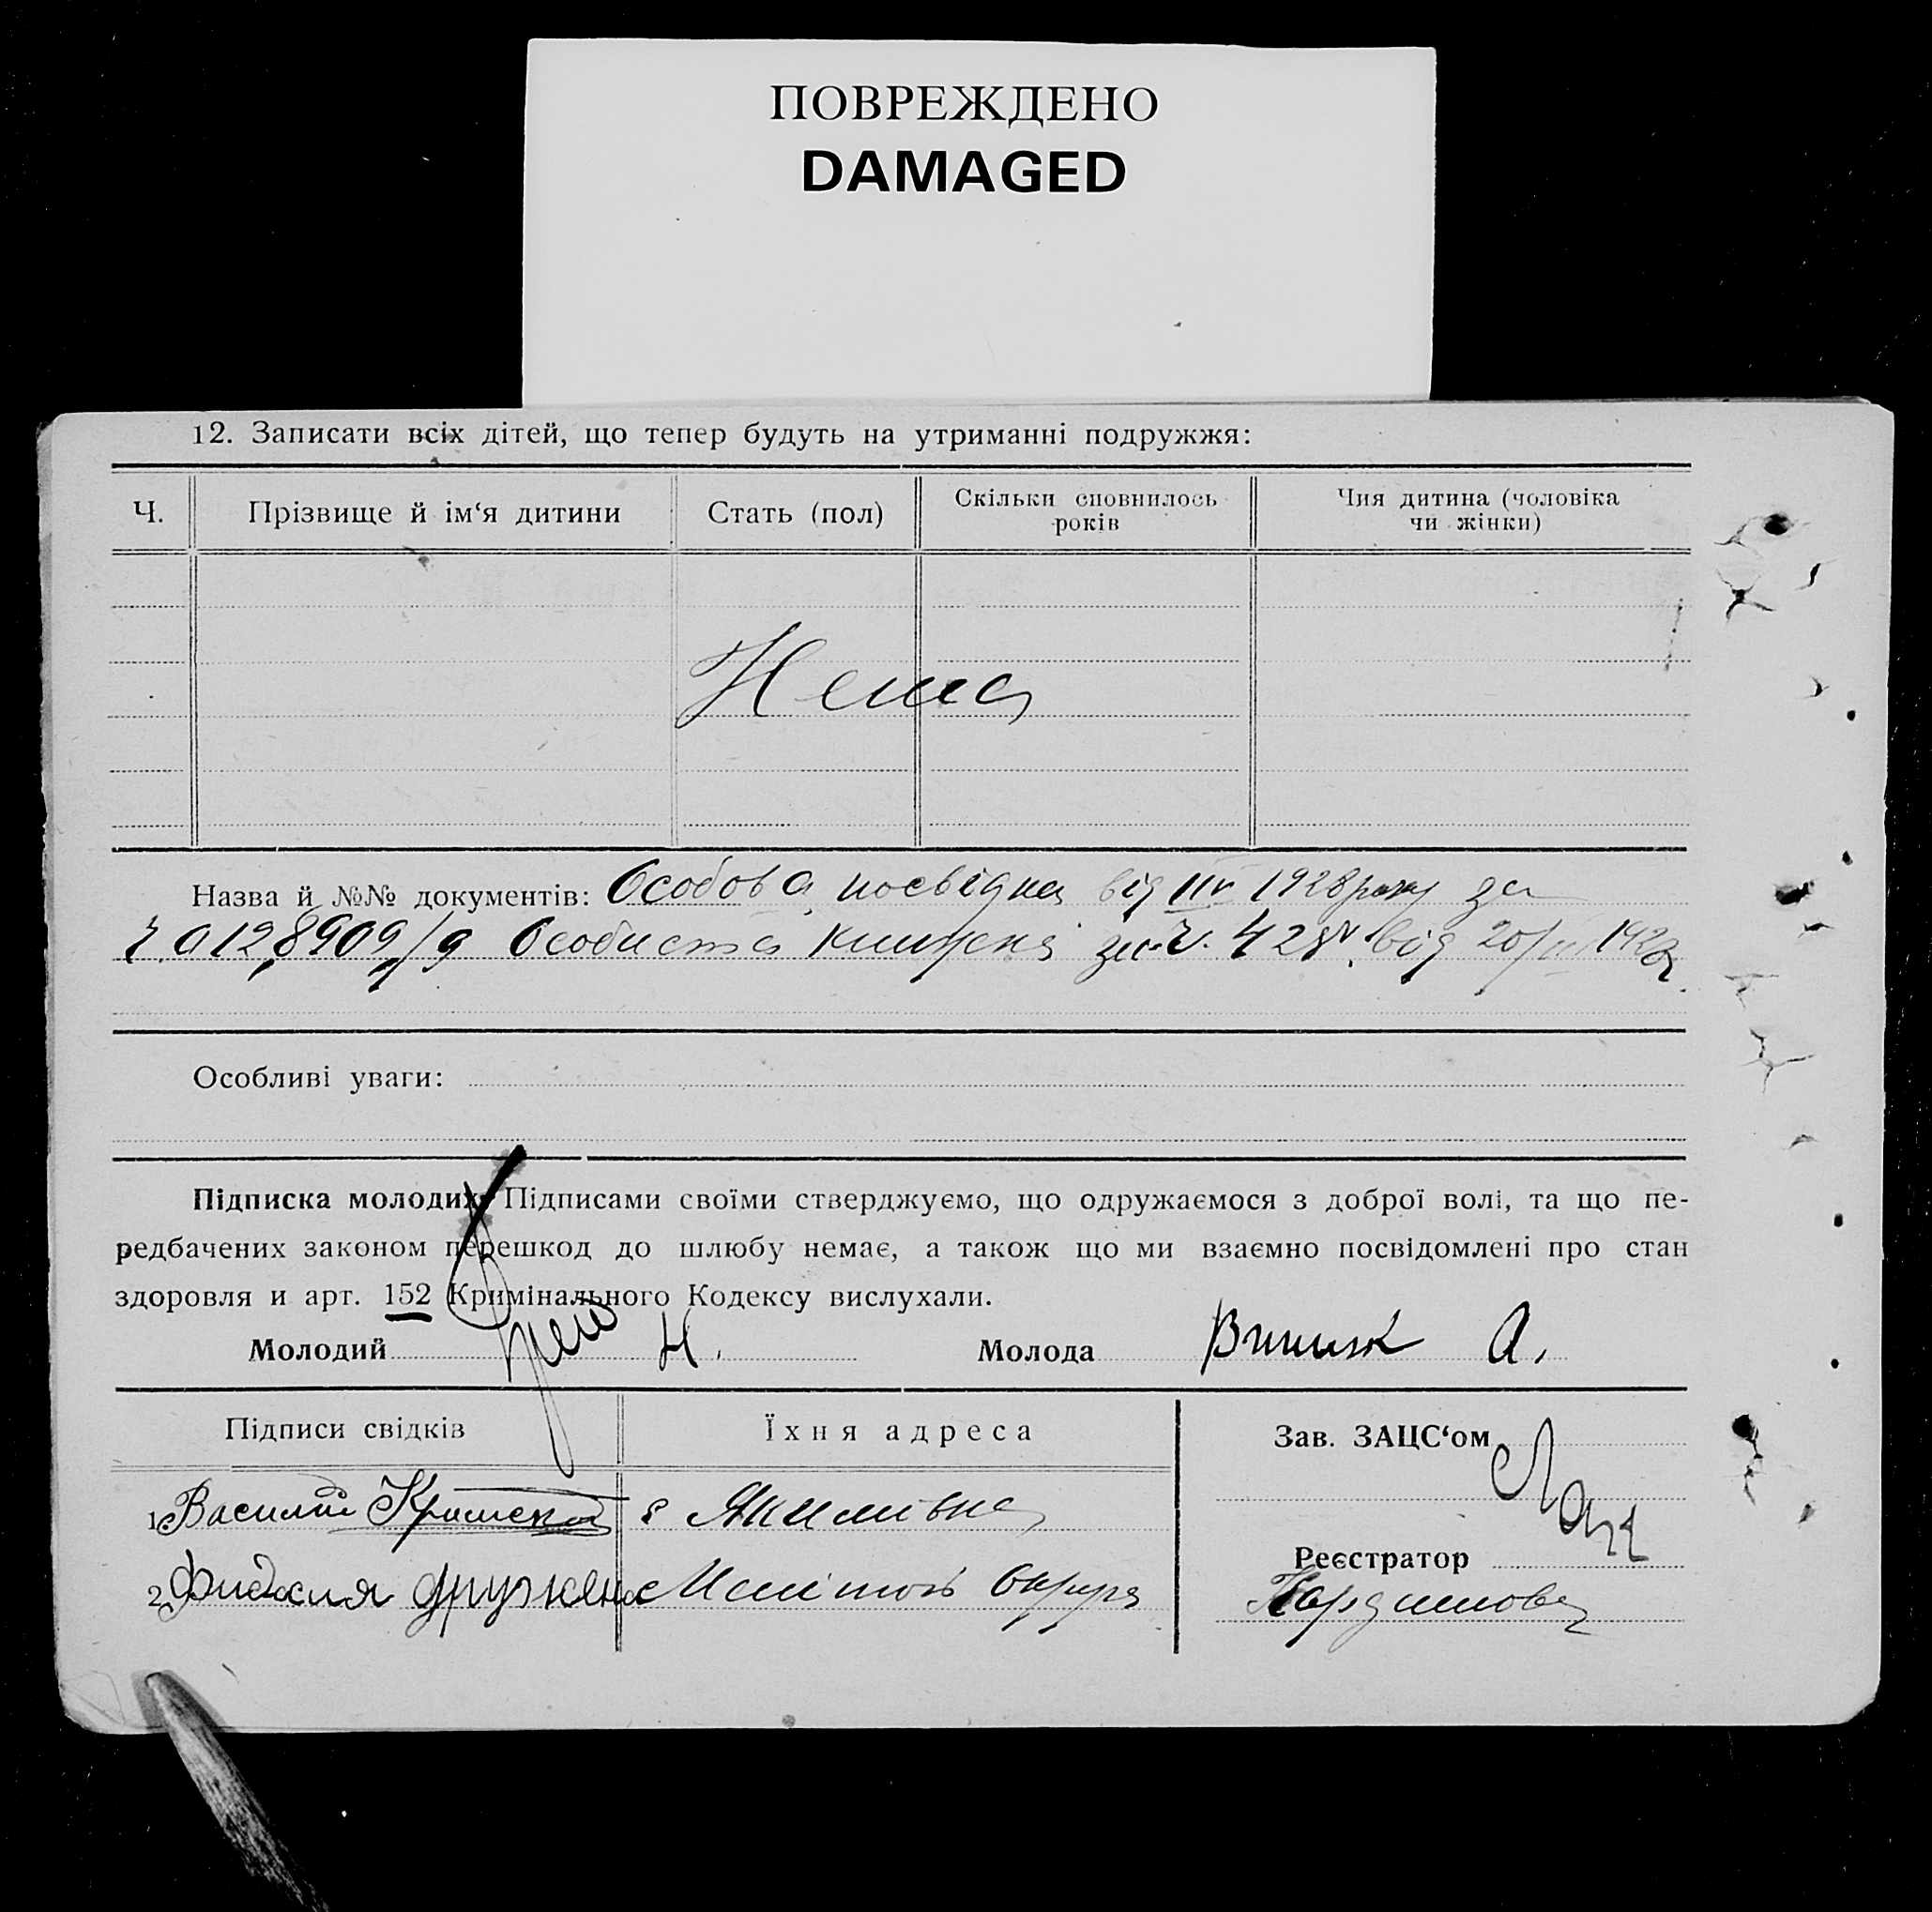 ПОВРЕЖДЕНО
DAMAGED
12. Записати всіх дітей, що тепер будуть на утриманні подружжя:
Ч. Прізвище й ім‘я дитини Стать (пол) Скільки сповнилось років Чия дитина (чоловіка чи жінки)
Нема
Назва й №№ документів: Особова посвідка від IIV 1928 року за
ч. а 128909/9 Особиста книжка за ч. від 20/III
Особливі уваги:
Підписка молодих. Підписами своїми стверджуємо, що одружаємося з доброї волі, та що пе-
редбачених законом перешкод до шлюбу немає, а також що ми взаємно посвідомлені про стан
здоровля и арт. 152 Кримінального Кодексу вислухали.
Молодий Н. Молода А.
Підписи свідків Їхня адреса Зав. ЗАЦС‘ом
1. Василий с Якимівка
Реєстратор
2. округа